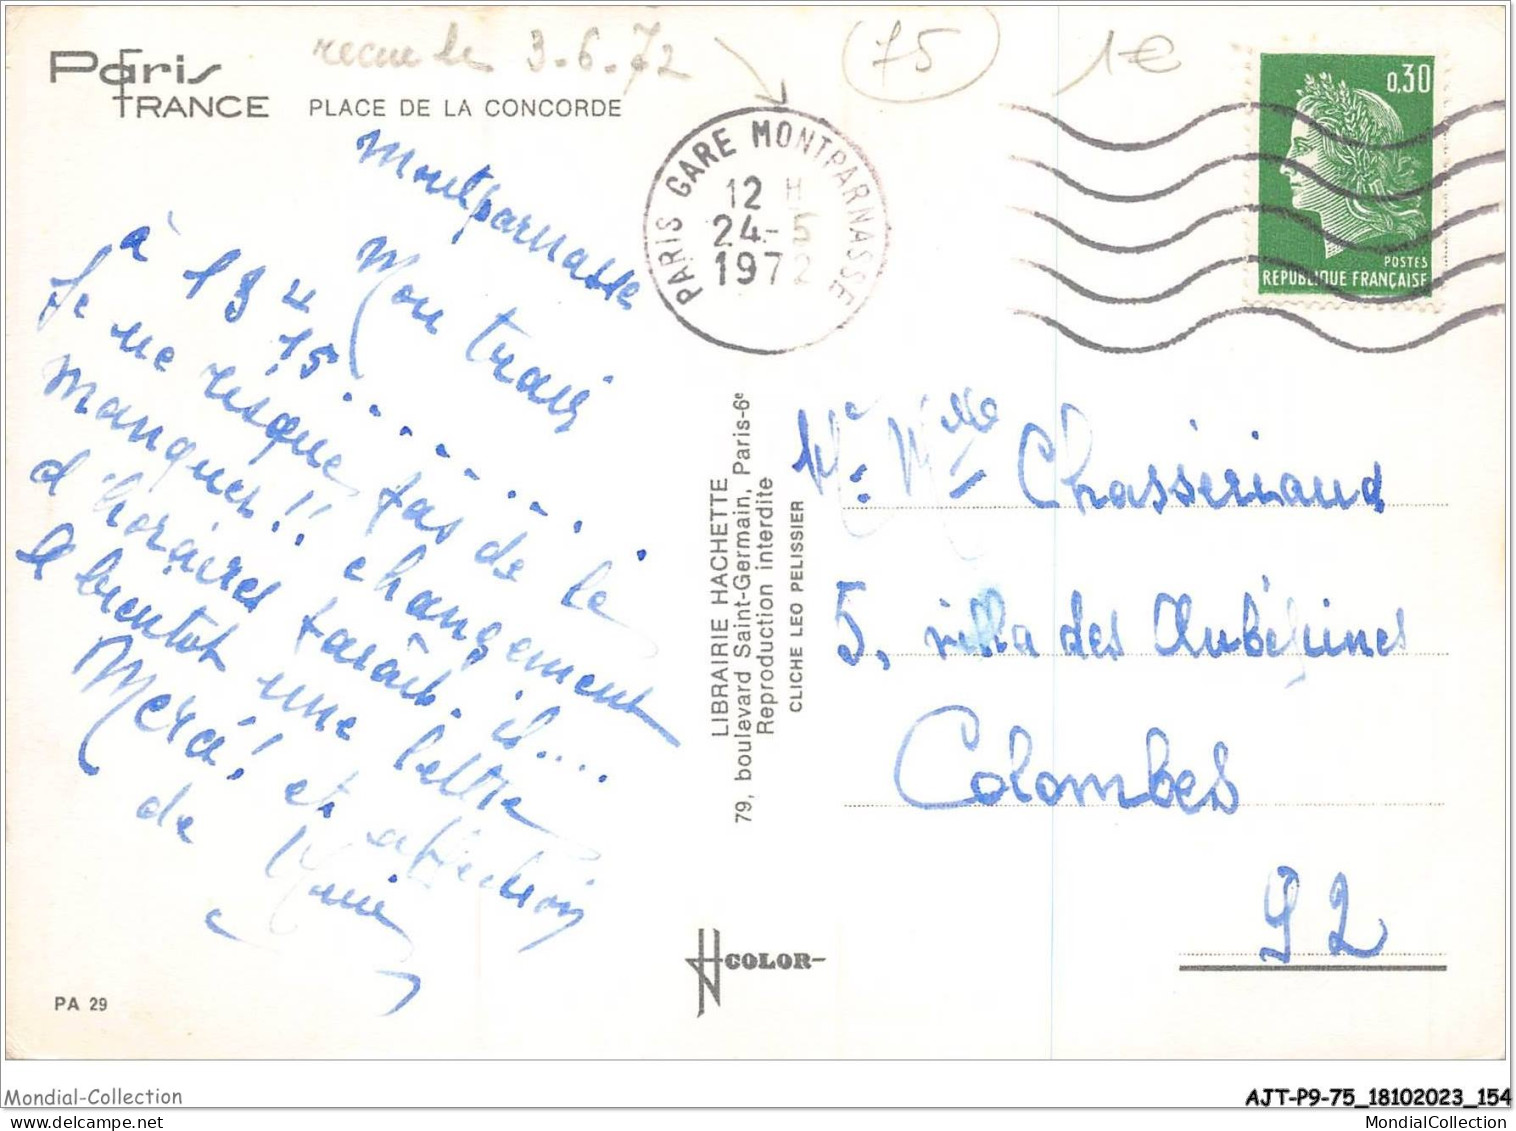 Paris
FRANCE
PLACE DE LA CONCORDE
recue le 3-6-72
75
1€
PARIS GARE MONTPARNASSE
12 H
24-5
1972
0,30
POSTES
REPUBLIQUE FRANÇAISE
Montparnasse
Mon train
à 13 H 15........
Je ne risque pas de le
manquer!! changement
d'horaires paraît-il....
A bientôt une lettre
Merci! et affection
de Marie
LIBRAIRIE HACHETTE
79, boulevard Saint-Germain, Paris-6e
Reproduction interdite
CLICHE LEO PELISSIER
Chasseriaud
5, villa des Aubépines
Colombes
92
COLOR
PA 29
Mondial-Collection
AJT-P9-75_18102023_154
MondialCollection